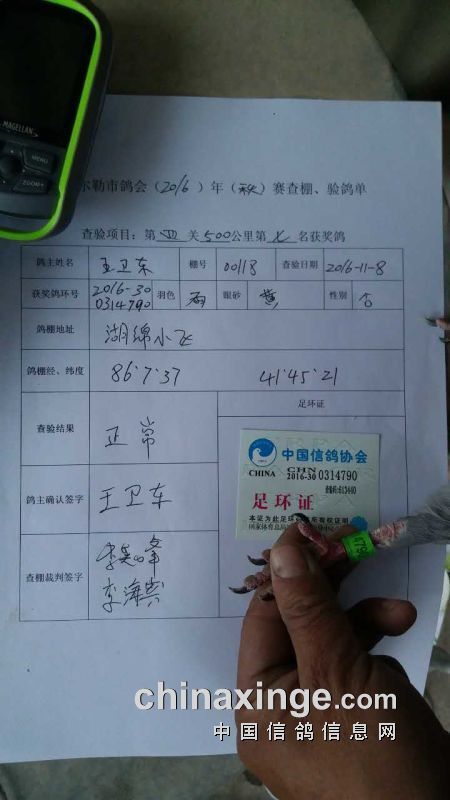 MAGELLAN
MENU
ZOOM+
尔勒市鸽会（2016）年（秋）赛查棚、验鸽单
查验项目：第 四 关 500公里第 七 名获奖鸽
鸽主姓名 王卫东 棚号 00118 查验日期 2016-11-8
获奖鸽环号 2016-30 0314790 羽色 雨 眼砂 黄 性别
鸽棚地址 湖绵小飞
鸽棚经、纬度 86°7'37 41°45'21
足环证
查验结果 正常
鸽主确认签字 王卫东
查棚裁判签字
中国信鸽协会
CHINA CHN
2016-30 0314790
足环证
本证为此足环 所有权证明
国家体育总局
479
chinaxinge.com
中国信鸽信息网